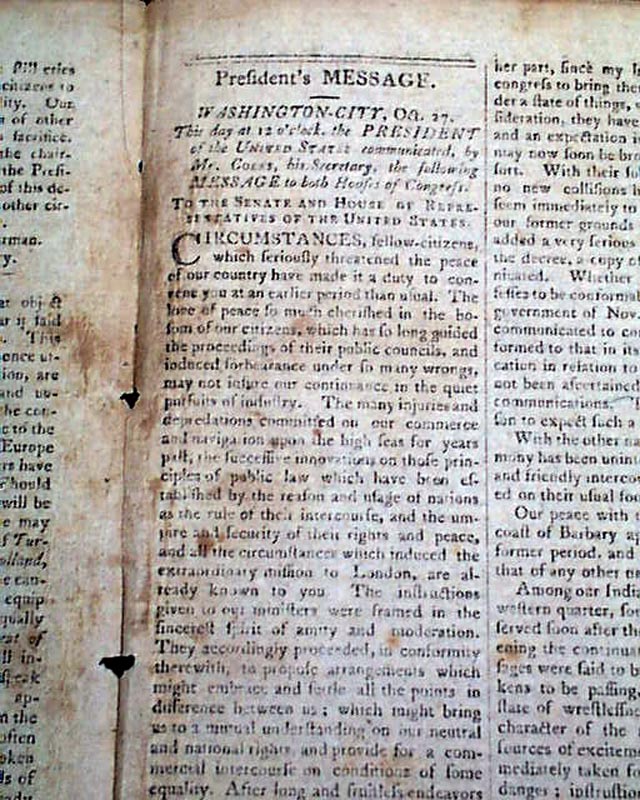 Bill cries
citizens to
lity. Our
of other
sacrifice.
the chair-
the Preſi-
of this de-
other cir-
rman.
ry.
at object
ar if ſaid
This
once ut-
ion, are
and
he con-
e to the
Europe
rs have
ſhould
will be
e may
f Tur-
olland,
e can-
equip
qually
at of
ll in-
ſpeak
ap-
n the
often
oken
ds of
Preſident's MESSAGE.
WASHINGTON-CITY, Oct. 27.
This day at 12 o'clock, the PRESIDENT
of the UNITED STATES communicated, by
Mr. COLES, his Secretary, the following
MESSAGE to both Houſes of Congreſs.
TO THE SENATE AND HOUSE OF REPRE-
SENTATIVES OF THE UNITED STATES.
CIRCUMSTANCES, fellow-citizens,
which ſeriouſly threatened the peace
of our country have made it a duty to con-
vene you at an earlier period than uſual. The
love of peace ſo much cheriſhed in the bo-
ſom of our citizens, which has ſo long guided
the proceedings of their public councils, and
induced forbearance under ſo many wrongs,
may not inſure our continuance in the quiet
purſuits of induſtry. The many injuries and
depredations committed on our commerce
and navigation upon the high ſeas for years
paſt, the ſucceſſive innovations on thoſe prin-
ciples of public law which have been eſ-
tabliſhed by the reaſon and uſage of nations
as the rule of their intercourſe, and the um-
pire and ſecurity of their rights and peace,
and all the circumſtances which induced the
extraordinary miſſion to London, are al-
ready known to you The inſtructions
given to our miniſters were framed in the
ſincereſt ſpirit of amity and moderation.
They accordingly proceeded, in conformity
therewith, to propoſe arrangements which
might embrace and ſettle all the points in
difference between us; which might bring
us to a mutual underſtanding on our neutral
and national rights, and provide for a com-
mercial intercourſe on conditions of ſome
equality. After long and fruitleſs endeavors
her part, ſince my
congreſs to bring them
der a ſtate of things,
ſideration, they have
and an expectation is
may now ſoon be bro
ſort. With their ſol
no new colliſions
ſeem immediately to
our former grounds
added a very ſerious
the decree, a copy of
nicated. Whether
ſeſſes to be conformab
government of Nov.
communicated to con
formed to that in its
cation in relation to
not been aſcertained
communications.
ſon to expect ſuch a
With the other na
mony has been unint
and friendly intercou
ed on their uſual foo
Our peace with
coaſt of Barbary ap
former period, and
that of any other
Among our India
weſtern quarter, ſom
ſerved ſoon after the
ening the continua
ſages were ſaid to b
kens to be paſſing
ſtate of wreſtleſsne
character of the
ſources of exciteme
mediately taken fo
danger; inſtruction